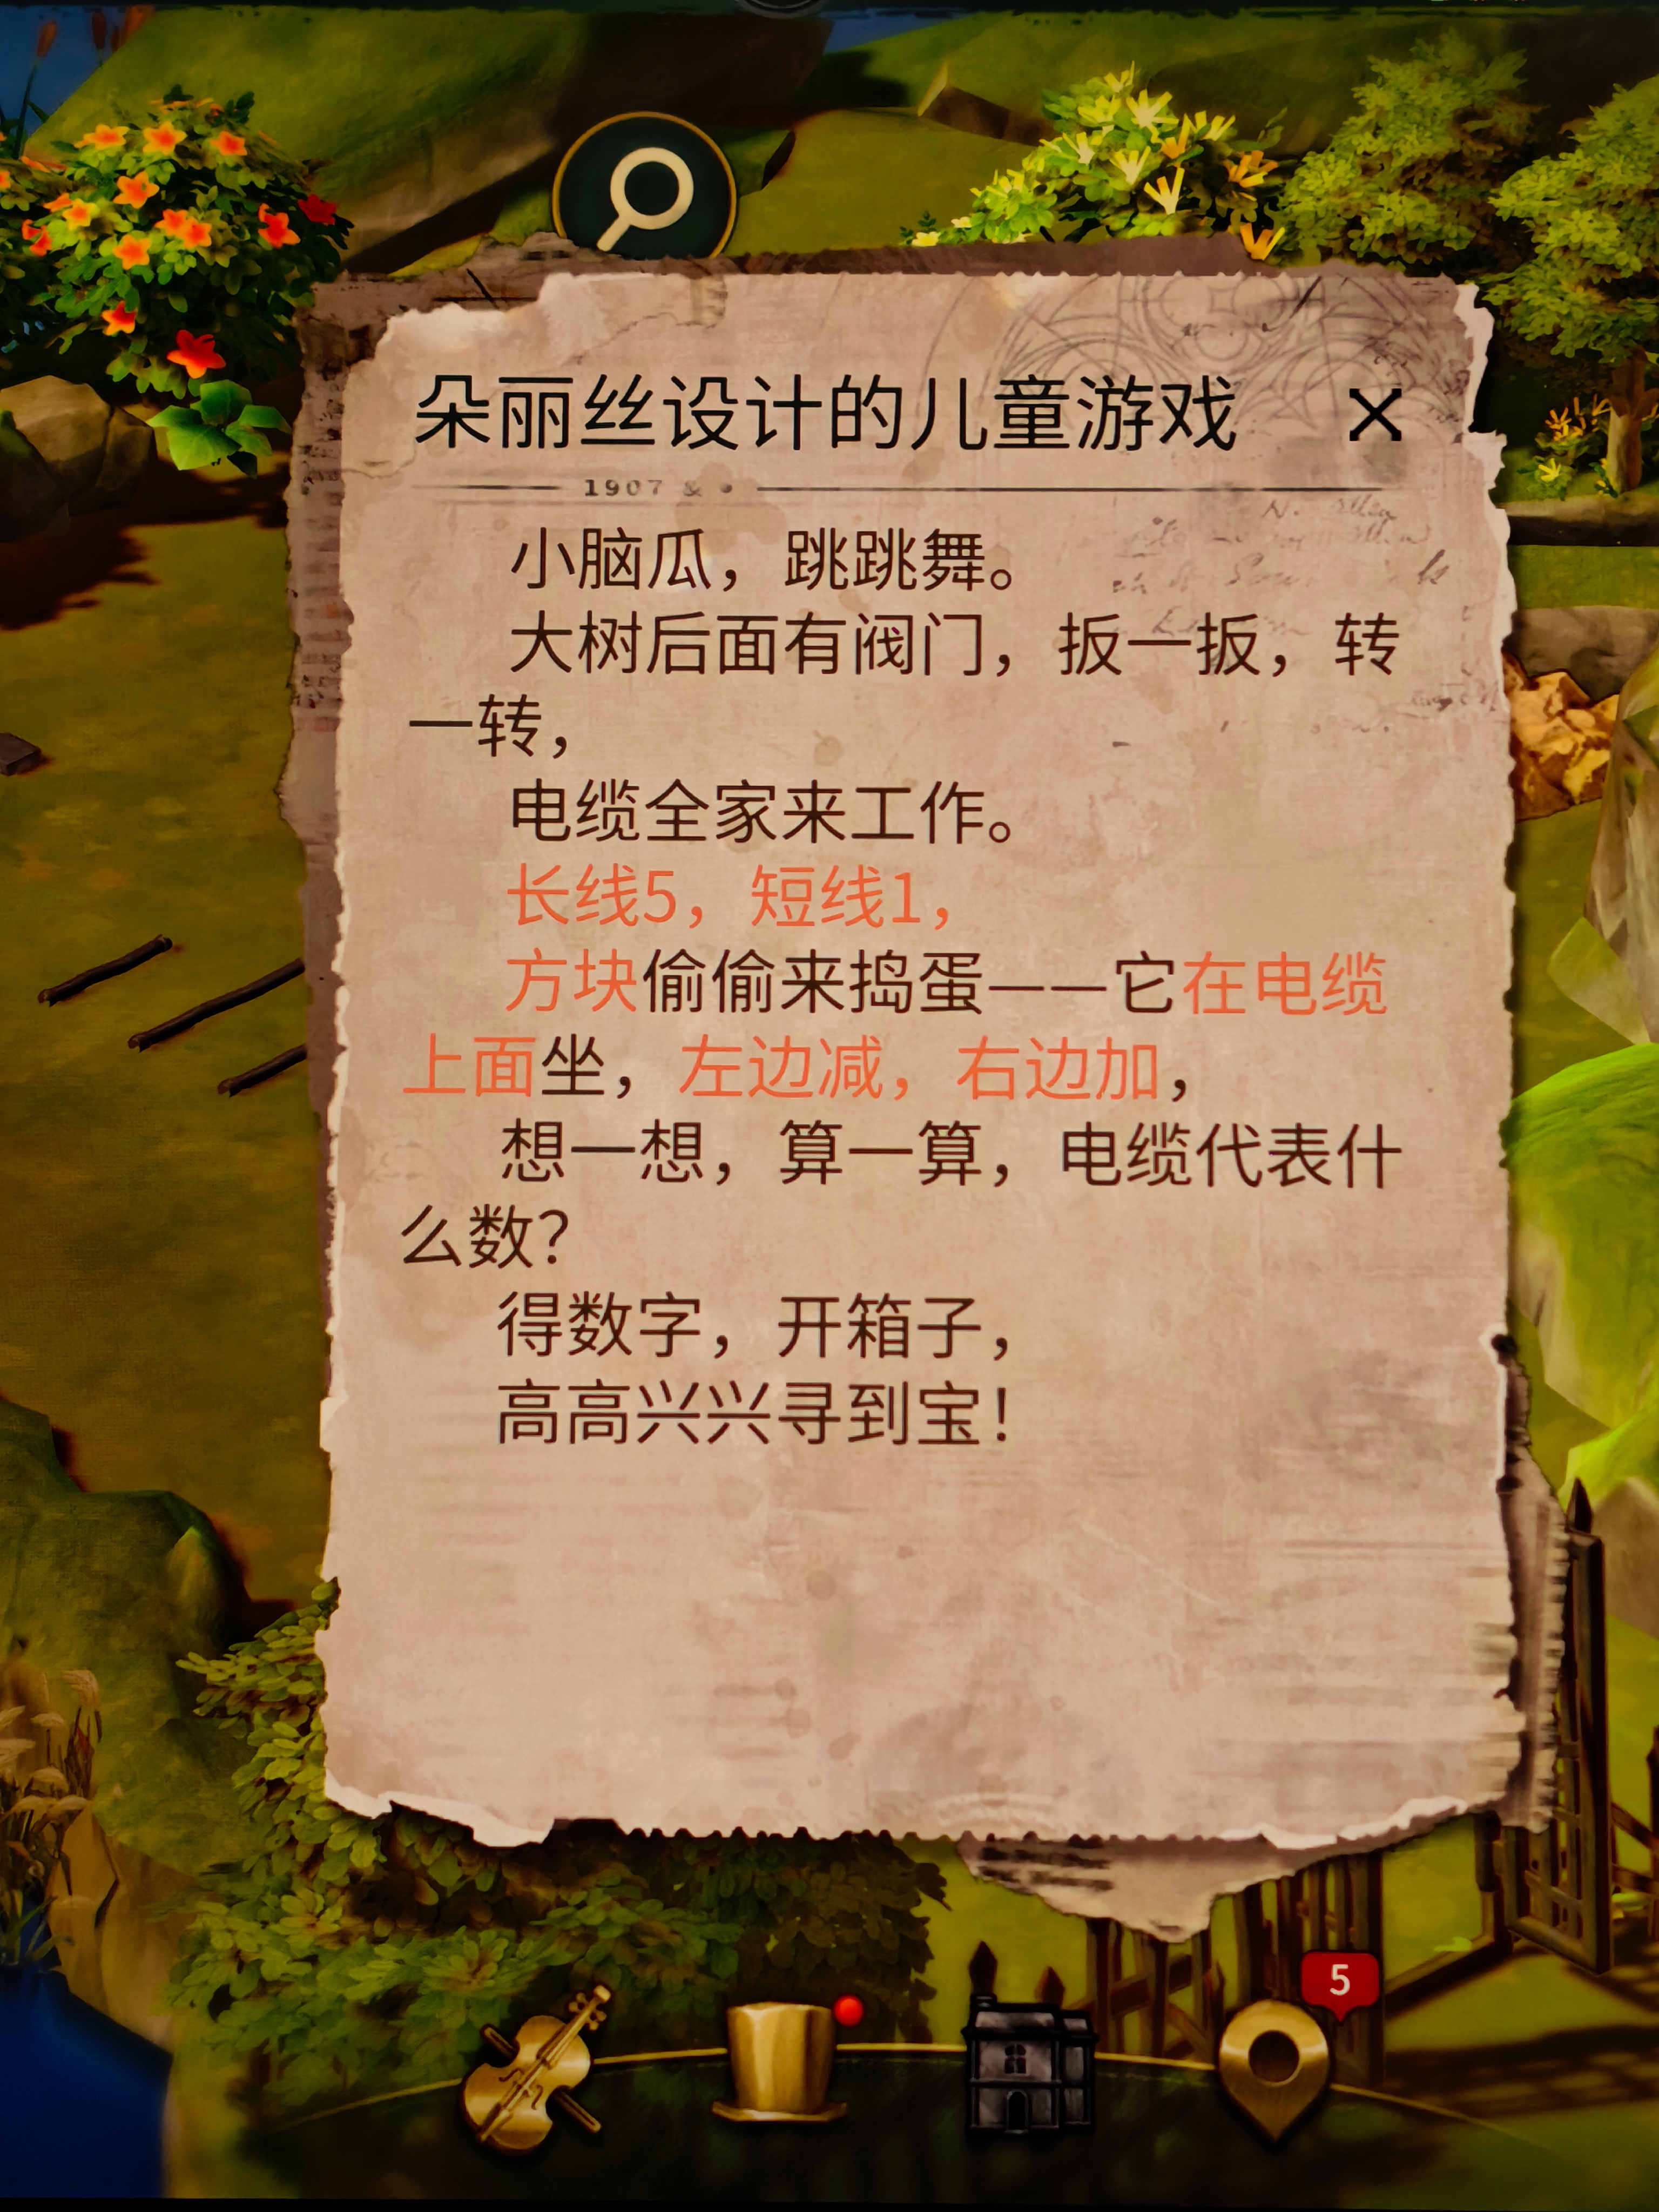 朵丽丝设计的儿童游戏
1907 &
小脑瓜，跳跳舞。
大树后面有阀门，扳一扳，转
一转，
电缆全家来工作。
长线5，短线1，
方块偷偷来捣蛋——它在电缆
上面坐，左边减，右边加，
想一想，算一算，电缆代表什
么数？
得数字，开箱子，
高高兴兴寻到宝！
5